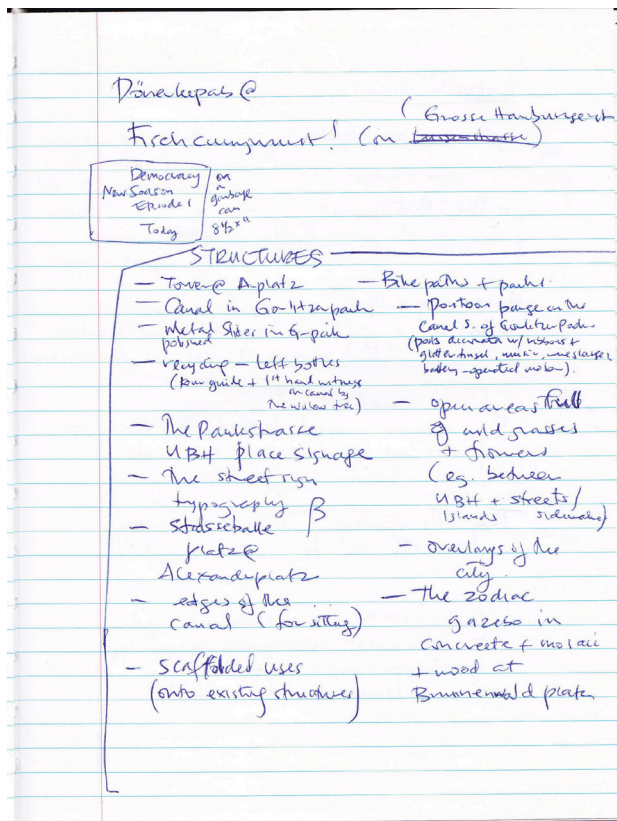 Dönerkepabs @
(Grosse Hamburgerst
(on
Democracy
New Season
Episode 1
Today
on
a
garbage
can
8½ x 11
STRUCTURES
— Tower @ A-platz
— Canal in Gorlitzerpark
— Metal Slider in G-park
polished
— recycling — left bottles
(tour guide + 1st hand witness
on canal by
the willow tree)
— The Pankstrasse
UBH place signage
— The street sign
typography β
— Strasseballe
platz @
Alexanderplatz
— edges of the
canal (for sitting)
— Scaffolded uses
(onto existing structures)
— Bike paths + parks.
— Pontoon barge on the
Canal S. of Gorlitzer Park
(posts decorated w/ ribbons +
glitter tinsel, music,
battery-operated motor).
— open areas full
of wild grasses
+ flowers
(eg. between
UBH + streets/
Islands sidewalks)
— overlays of the
city.
— The zodiac
gazebo in
concreete + mosaic
+ wood at
platz